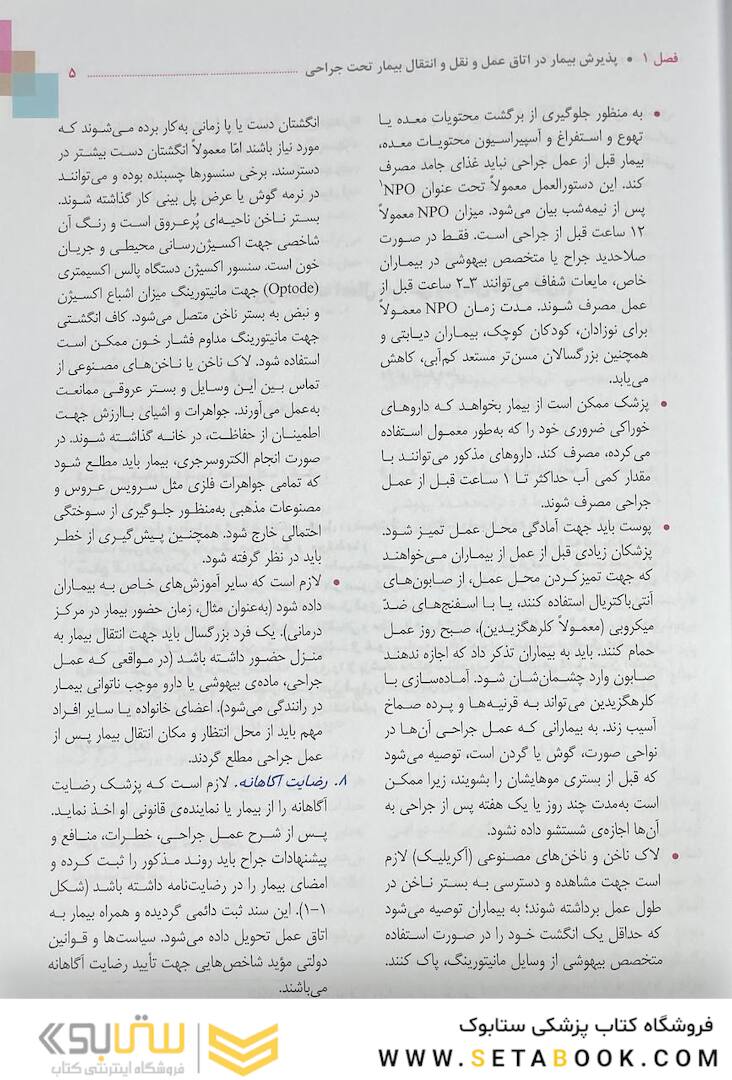 فصل ۱ • پذیرش بیمار در اتاق عمل و نقل و انتقال بیمار تحت جراحی ........ ۵
• به منظور جلوگیری از برگشت محتویات معده یا
تهوع و استفراغ و آسپیراسیون محتویات معده،
بیمار قبل از عمل جراحی نباید غذای جامد مصرف
کند. این دستورالعمل معمولاً تحت عنوان NPO¹
پس از نیمه‌شب بیان می‌شود. میزان NPO معمولاً
۱۲ ساعت قبل از جراحی است. فقط در صورت
صلاحدید جراح یا متخصص بیهوشی در بیماران
خاص، مایعات شفاف می‌توانند ۳-۲ ساعت قبل از
عمل مصرف شوند. مدت زمان NPO معمولاً
برای نوزادان، کودکان کوچک، بیماران دیابتی و
همچنین بزرگسالان مسن‌تر مستعد کم‌آبی، کاهش
می‌یابد.
• پزشک ممکن است از بیمار بخواهد که داروهای
خوراکی ضروری خود را که به‌طور معمول استفاده
می‌کرده، مصرف کند. داروهای مذکور می‌توانند با
مقدار کمی آب حداکثر تا ۱ ساعت قبل از عمل
جراحی مصرف شوند.
• پوست باید جهت آمادگی محل عمل تمیز شود.
پزشکان زیادی قبل از عمل از بیماران می‌خواهند
که جهت تمیزکردن محل عمل، از صابون‌های
آنتی‌باکتریال استفاده کنند، یا با اسفنج‌های ضدّ
میکروبی (معمولاً کلرهگزیدین)، صبح روز عمل
حمام کنند. باید به بیماران تذکر داد که اجازه ندهند
صابون وارد چشمان‌شان شود. آماده‌سازی با
کلرهگزیدین می‌تواند به قرنیه‌ها و پرده صماخ
آسیب زند. به بیمارانی که عمل جراحی آن‌ها در
نواحی صورت، گوش یا گردن است، توصیه می‌شود
که قبل از بستری موهایشان را بشویند، زیرا ممکن
است به‌مدت چند روز یا یک هفته پس از جراحی به
آن‌ها اجازه‌ی شستشو داده نشود.
• لاک ناخن و ناخن‌های مصنوعی (آکریلیک) لازم
است جهت مشاهده و دسترسی به بستر ناخن در
طول عمل برداشته شوند؛ به بیماران توصیه می‌شود
که حداقل یک انگشت خود را در صورت استفاده
متخصص بیهوشی از وسایل مانیتورینگ، پاک کنند.
انگشتان دست یا پا زمانی به‌کار برده می‌شوند که
مورد نیاز باشند امّا معمولاً انگشتان دست بیشتر در
دسترسند. برخی سنسورها چسبنده بوده و می‌توانند
در نرمه گوش یا عرض پل بینی کار گذاشته شوند.
بستر ناخن ناحیه‌ای پُرعروق است و رنگ آن
شاخصی جهت اکسیژن‌رسانی محیطی و جریان
خون است. سنسور اکسیژن دستگاه پالس اکسیمتری
(Optode) جهت مانیتورینگ میزان اشباع اکسیژن
و نبض به بستر ناخن متصل می‌شود. کاف انگشتی
جهت مانیتورینگ مداوم فشار خون ممکن است
استفاده شود. لاک ناخن یا ناخن‌های مصنوعی از
تماس بین این وسایل و بستر عروقی ممانعت
به‌عمل می‌آورند. جواهرات و اشیای باارزش جهت
اطمینان از حفاظت، در خانه گذاشته شوند. در
صورت انجام الکتروسرجری، بیمار باید مطلع شود
که تمامی جواهرات فلزی مثل سرویس عروس و
مصنوعات مذهبی به‌منظور جلوگیری از سوختگی
احتمالی خارج شود. همچنین پیش‌گیری از خطر
باید در نظر گرفته شود.
• لازم است که سایر آموزش‌های خاص به بیماران
داده شود (به‌عنوان مثال، زمان حضور بیمار در مرکز
درمانی). یک فرد بزرگسال باید جهت انتقال بیمار به
منزل حضور داشته باشد (در مواقعی که عمل
جراحی، ماده‌ی بیهوشی یا دارو موجب ناتوانی بیمار
در رانندگی می‌شود). اعضای خانواده یا سایر افراد
مهم باید از محل انتظار و مکان انتقال بیمار پس از
عمل جراحی مطلع گردند.
۸. رضایت آگاهانه. لازم است که پزشک رضایت
آگاهانه را از بیمار یا نماینده‌ی قانونی او اخذ نماید.
پس از شرح عمل جراحی، خطرات، منافع و
پیشنهادات جراح باید روند مذکور را ثبت کرده و
امضای بیمار را در رضایت‌نامه داشته باشد (شکل
۱-۱). این سند ثبت دائمی گردیده و همراه بیمار به
اتاق عمل تحویل داده می‌شود. سیاست‌ها و قوانین
دولتی مؤید شاخص‌هایی جهت تأیید رضایت آگاهانه
می‌باشند.
فروشگاه کتاب پزشکی ستابوک
WWW.SETABOOK.COM
ستابوک
فروشگاه اینترنتی کتاب